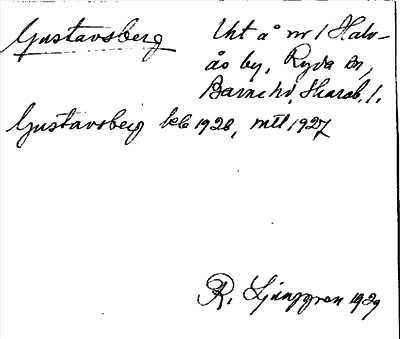 Gustavsberg Uht å nr 1 Halv-
ås by, Ryda sn,
Barne hd, Skarab. l.
Gustavsberg kb 1926, mtl 1927
R. Ljunggren 1929